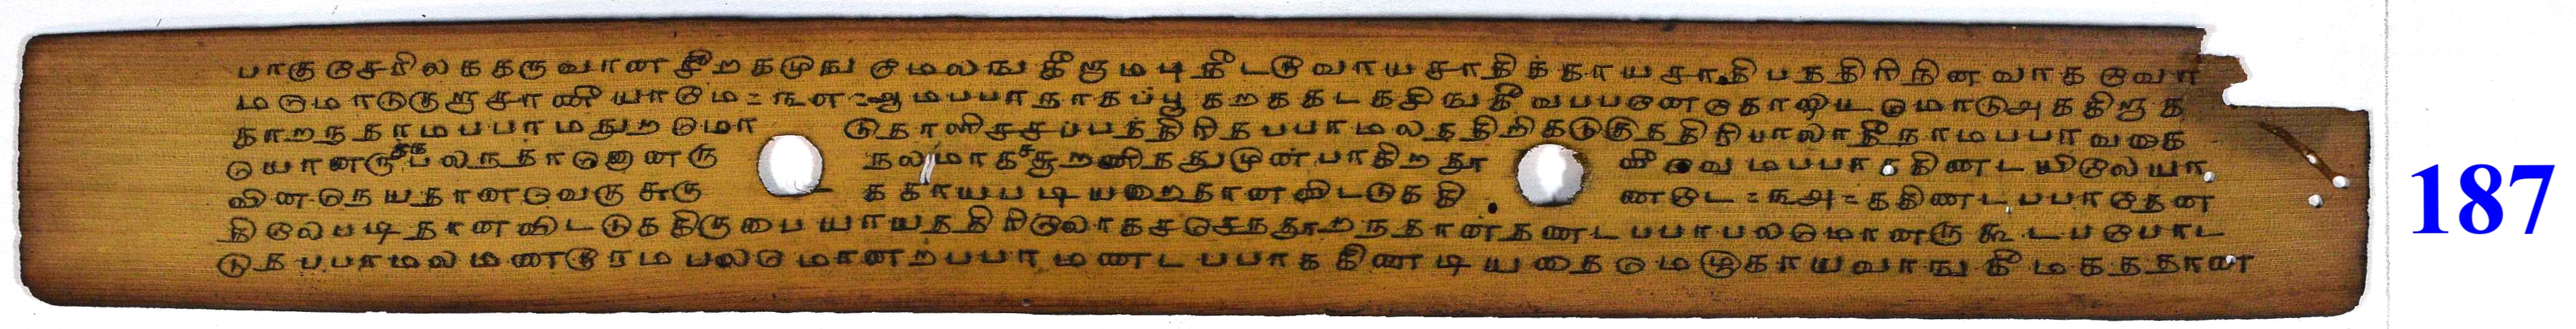 பாகுசெரிலககருவானசீறகமுஙகுமலஙகீறுமபுகீடடுவாயசாதிக்காயசாதிபததிரிதினவாகவொ
மமொடுகுறசாணியாமெ = ௩௭ = ஆமபபாநாகப்பூகறககடகசிஙகீவபபனெகொளியமொடுஅககிறுக
காறநதாமபபாமதுறமொ டுதாளிசசபபத்திரிதபபாமலததிறிகடுகுததிரிபாலாதீநாமபபாவகை
யொனருபலநதானெனரு நலமாகசூறணிதததுமுன்பாகிறதூ வீவெமபபாகிணடயிலெயா
வினநெயதானவெருசுரு ககாயபடியறைதானவிடடுககி ணடெ = ௩அ = ததிணடபபாதென
திலெபடிதானவிடடுககிருபையாயததிரிலொகசெசநதூறநதானதணடபபாபலமொனருகூடபபொட
டுகபபாமலமணடூரமபலமொனறபபாமணடபபாககிணடியதைமெழுகாயவாஙகீமகததான
187